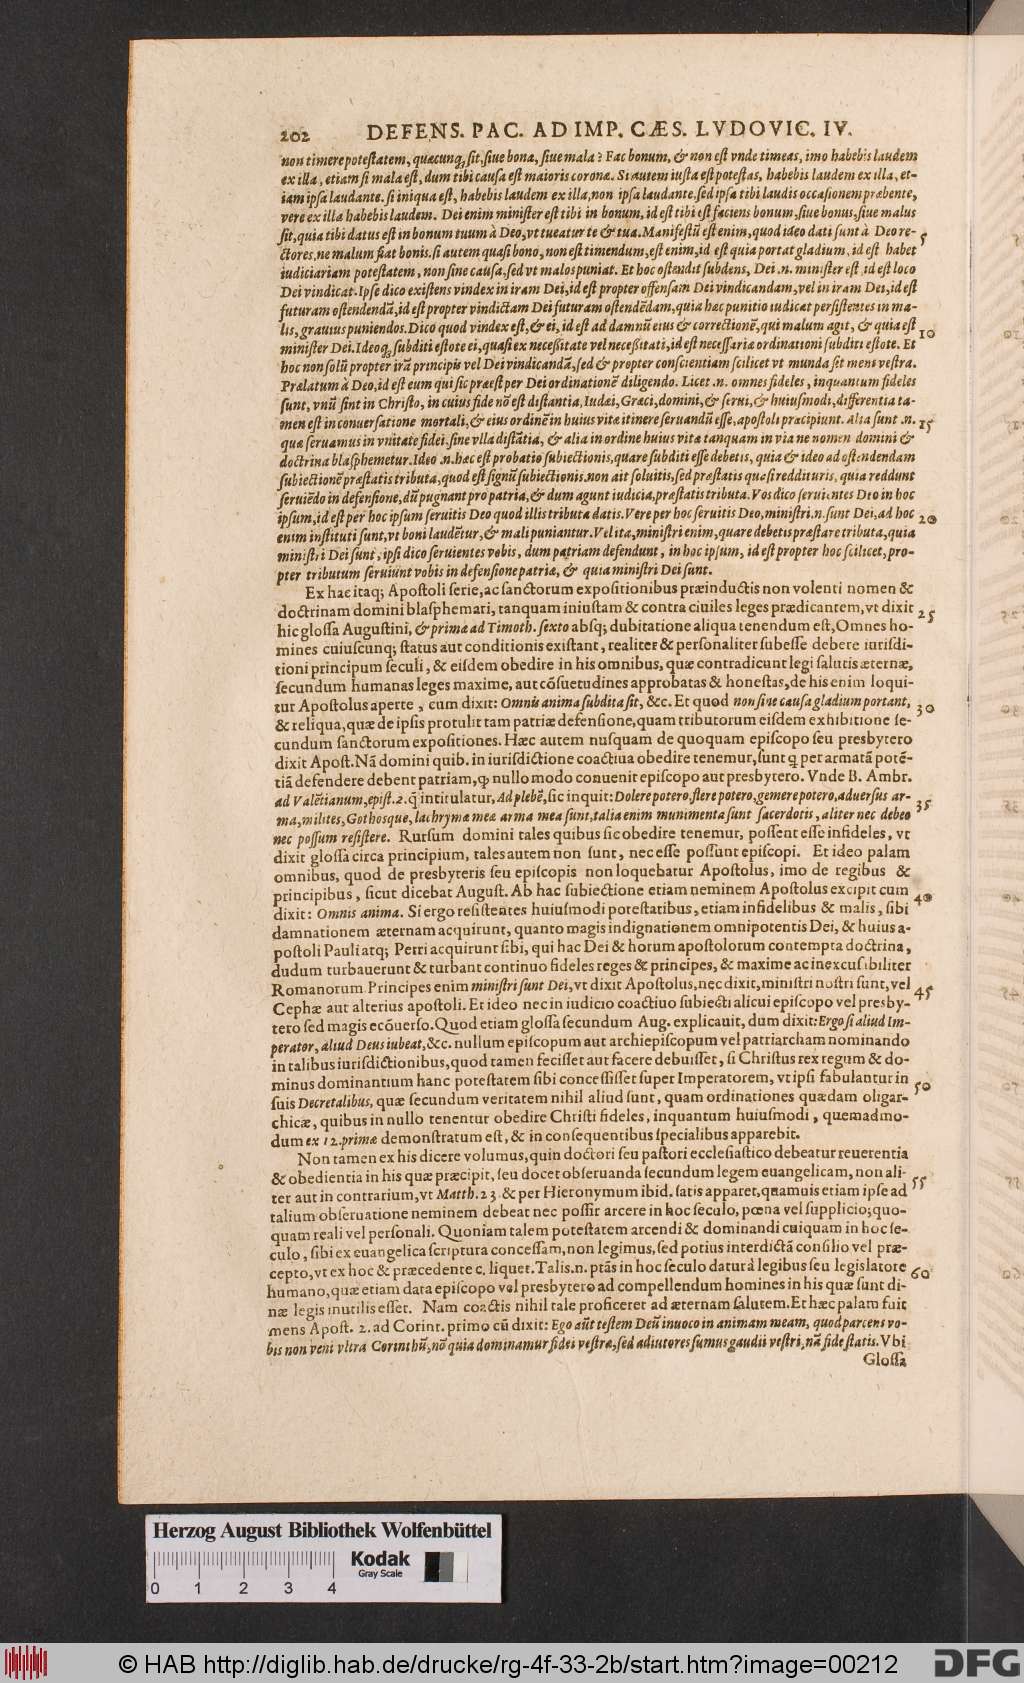 202 DEFENS. PAC. AD IMP. CÆS. LVDOVIC. IV.
non timere potestatem, quæcunq; sit, siue bona, siue mala? Fac bonum, & non est vnde timeas, imo habebis laudem
ex illa, etiam si mala est, dum tibi causa est maioris coronæ. Si autem iusta est potestas, habebis laudem ex illa, et-
iam ipsa laudante. si iniqua est, habebis laudem ex illa, non ipsa laudante, sed ipsa tibi laudis occasionem præbente,
vere ex illa habebis laudem. Dei enim minister est tibi in bonum, id est tibi est faciens bonum, siue bonus, siue malus
sit, quia tibi datus est in bonum tuum à Deo, vt tueatur te & tua. Manifestũ est enim, quod ideo dati sunt à Deo re- 5
ctores, ne malum fiat bonis. si autem quasi bono, non est timendum, est enim, id est quia portat gladium, id est habet
iudiciariam potestatem, non sine causa, sed vt malos puniat. Et hoc ostendit subdens, Dei .n. minister est, id est loco
Dei vindicat. Ipse dico existens vindex in iram Dei, id est propter offensam Dei vindicandam, vel in iram Dei, id est
futuram ostendendã, id est propter vindictam Dei futuram ostendẽdam, quia hæc punitio iudicat persistentes in ma-
lis, grauius puniendos. Dico quod vindex est, & ei, id est ad damnũ eius & correctionẽ, qui malum agit, & quia est 10
minister Dei. Ideoq; subditi estote ei, quasi ex necessitate vel necessitati, id est necessariæ ordinationi subditi estote. Et
hoc non solũ propter irã principis vel Dei vindicandã, sed & propter conscientiam scilicet vt munda sit mens vestra.
Prælatum à Deo, id est eum qui sic præest per Dei ordinationẽ diligendo. Licet .n. omnes fideles, inquantum fideles
sunt, vnũ sint in Christo, in cuius fide nõ est distantia, Iudæi, Græci, domini, & serui, & huiusmodi, differentia ta-
men est in conuersatione mortali, & eius ordinẽ in huius vitæ itinere seruandũ esse, apostoli præcipiunt. Alia sunt .n. 15
quæ seruamus in vnitate fidei, sine vlla distãtia, & alia in ordine huius vitæ tanquam in via ne nomen domini &
doctrina blasphemetur. Ideo .n. hæc est probatio subiectionis, quare subditi esse debetis, quia & ideo ad ostendendam
subiectionẽ præstatis tributa, quod est signũ subiectionis. non ait soluitis, sed præstatis quasi reddituris, quia reddunt
seruiẽdo in defensione, dũ pugnant pro patria, & dum agunt iudicia, præstatis tributa. Vos dico seruientes Deo in hoc
ipsum, id est per hoc ipsum seruitis Deo quod illis tributa datis. Vere per hoc seruitis Deo, ministri .n. sunt Dei, ad hoc 20
enim instituti sunt, vt boni laudẽtur, & mali puniantur. Vel ita, ministri enim, quare debetis præstare tributa, quia
ministri Dei sunt, ipsi dico seruientes vobis, dum patriam defendunt, in hoc ipsum, id est propter hoc scilicet, pro-
pter tributum seruiunt vobis in defensione patriæ, & quia ministri Dei sunt.
Ex hac itaq; Apostoli serie, ac sanctorum expositionibus præinductis non volenti nomen &
doctrinam domini blasphemari, tanquam iniustam & contra ciuiles leges prædicantem, vt dixit 25
hic glossa Augustini, & primæ ad Timoth. sexto absq; dubitatione aliqua tenendum est, Omnes ho-
mines cuiuscunq; status aut conditionis existant, realiter & personaliter subesse debere iurisdi-
tioni principum seculi, & eisdem obedire in his omnibus, quæ contradicunt legi salutis æternæ,
secundum humanas leges maxime, aut cõsuetudines approbatas & honestas, de his enim loqui-
tur Apostolus aperte, cum dixit: Omnis anima subdita sit, &c. Et quod non sine causa gladium portant, 30
& reliqua, quæ de ipsis protulit tam patriæ defensione, quam tributorum eisdem exhibitione se-
cundum sanctorum expositiones. Hæc autem nusquam de quoquam episcopo seu presbytero
dixit Apost. Nã domini quib. in iurisdictione coactiua obedire tenemur, sunt q per armatã potẽ-
tiã defendere debent patriam, ꝙ nullo modo conuenit episcopo aut presbytero. Vnde B. Ambr.
ad Valẽtianum, epist. 2. q̃ intitulatur, Ad plebẽ, sic inquit: Dolere potero, flere potero, gemere potero, aduersus ar- 35
ma, milites, Gothosque, lachrymæ meæ arma mea sunt, talia enim munimenta sunt sacerdotis, aliter nec debeo
nec possum resistere. Rursum domini tales quibus sic obedire tenemur, possent esse infideles, vt
dixit glossa circa principium, tales autem non sunt, nec esse possunt episcopi. Et ideo palam
omnibus, quod de presbyteris seu episcopis non loquebatur Apostolus, imo de regibus &
principibus, sicut dicebat August. Ab hac subiectione etiam neminem Apostolus excipit cum
dixit: Omnis anima. Si ergo resistentes huiusmodi potestatibus, etiam infidelibus & malis, sibi 40
damnationem æternam acquirunt, quanto magis indignationem omnipotentis Dei, & huius a-
postoli Pauli atq; Petri acquirunt sibi, qui hac Dei & horum apostolorum contempta doctrina,
dudum turbauerunt & turbant continuo fideles reges & principes, & maxime ac inexcusibiliter
Romanorum Principes enim ministri sunt Dei, vt dixit Apostolus, nec dixit, ministri nostri sunt, vel
Cephæ aut alterius apostoli. Et ideo nec in iudicio coactiuo subiecti alicui episcopo vel presby- 45
tero sed magis ecõuerso. Quod etiam glossa secundum Aug. explicauit, dum dixit: Ergo si aliud Im-
perator, aliud Deus iubeat, &c. nullum episcopum aut archiepiscopum vel patriarcham nominando
in talibus iurisdictionibus, quod tamen fecisset aut facere debuisset, si Christus rex regum & do-
minus dominantium hanc potestatem sibi concessisset super Imperatorem, vt ipsi fabulantur in
suis Decretalibus, quæ secundum veritatem nihil aliud sunt, quam ordinationes quædam oligar- 50
chicæ, quibus in nullo tenentur obedire Christi fideles, inquantum huiusmodi, quemadmo-
dum ex 12. primæ demonstratum est, & in consequentibus specialibus apparebit.
Non tamen ex his dicere volumus, quin doctori seu pastori ecclesiastico debeatur reuerentia
& obedientia in his quæ præcipit, seu docet obseruanda secundum legem euangelicam, non ali-
ter aut in contrarium, vt Matth. 23 & per Hieronymum ibid. satis apparet, quamuis etiam ipse ad 55
talium obseruatione neminem debeat nec possit arcere in hoc seculo, pœna vel supplicio; quo-
quam reali vel personali. Quoniam talem potestatem arcendi & dominandi cuiquam in hoc se-
culo, sibi ex euangelica scriptura concessam, non legimus, sed potius interdictã consilio vel præ-
cepto, vt ex hoc & præcedente c. liquet. Talis .n. ptãs in hoc seculo datur à legibus seu legislatore
humano, quæ etiam data episcopo vel presbytero ad compellendum homines in his quæ sunt di- 60
næ legis inutilis esset. Nam coactis nihil tale proficeret ad æternam salutem. Et hæc palam fuit
mens Apost. 2. ad Corint. primo cũ dixit: Ego aũt testem Deũ inuoco in animam meam, quod parcens vo-
bis non veni vltra Corinthũ, nõ quia dominamur fidei vestræ, sed adiutores sumus gaudii vestri, nã fide statis. Vbi
Glossa
Herzog August Bibliothek Wolfenbüttel
Kodak
Gray Scale
0 1 2 3 4
© HAB http://diglib.hab.de/drucke/rg-4f-33-2b/start.htm?image=00212
DFG